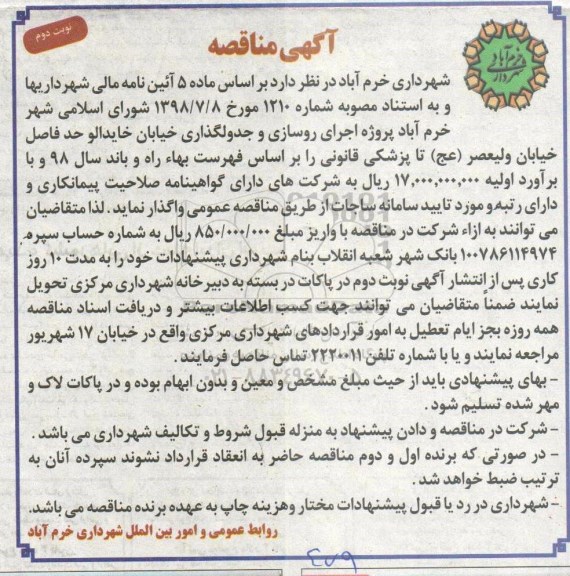 نوبت دوم
آگهی مناقصه
خرم آباد
شهرداری
شهرداری خرم آباد در نظر دارد بر اساس ماده ۵ آئین نامه مالی شهرداریها
و به استناد مصوبه شماره ۱۲۱۰ مورخ ۱۳۹۸/۷/۸ شورای اسلامی شهر
خرم آباد پروژه اجرای روسازی و جدولگذاری خیابان خایدالو حد فاصل
خیابان ولیعصر (عج) تا پزشکی قانونی را بر اساس فهرست بهاء راه و باند سال ۹۸ و با
برآورد اولیه ۱۷,۰۰۰,۰۰۰,۰۰۰ ریال به شرکت های دارای گواهینامه صلاحیت پیمانکاری و
دارای رتبه و مورد تایید سامانه ساجات از طریق مناقصه عمومی واگذار نماید . لذا متقاضیان
می توانند به ازاء شرکت در مناقصه با واریز مبلغ ۸۵۰/۰۰۰/۰۰۰ ریال به شماره حساب سپرده
۱۰۰۷۸۶۱۱۴۹۷۴ بانک شهر شعبه انقلاب بنام شهرداری پیشنهادات خود را به مدت ۱۰ روز
کاری پس از انتشار آگهی نوبت دوم در پاکات در بسته به دبیرخانه شهرداری مرکزی تحویل
نمایند ضمناً متقاضیان می توانند جهت کسب اطلاعات بیشتر و دریافت اسناد مناقصه
همه روزه بجز ایام تعطیل به امور قراردادهای شهرداری مرکزی واقع در خیابان ۱۷ شهریور
مراجعه نمایند و یا با شماره تلفن ۲۲۲۰۰۱۱ تماس حاصل فرمایند .
- بهای پیشنهادی باید از حیث مبلغ مشخص و معین و بدون ابهام بوده و در پاکات لاک و
مهر شده تسلیم شود .
- شرکت در مناقصه و دادن پیشنهاد به منزله قبول شروط و تکالیف شهرداری می باشد .
- در صورتی که برنده اول و دوم مناقصه حاضر به انعقاد قرارداد نشوند سپرده آنان به
ترتیب ضبط خواهد شد .
- شهرداری در رد یا قبول پیشنهادات مختار وهزینه چاپ به عهده برنده مناقصه می باشد.
روابط عمومی و امور بین الملل شهرداری خرم آباد